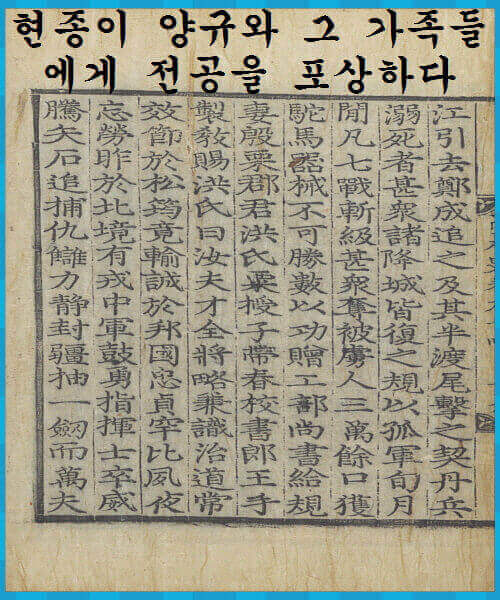 현종이 양규와 그 가족들
에게 전공을 포상하다
江引去鄭成追之及其半渡尾擊之契丹兵
溺死者甚衆諸降城皆復之規以孤軍旬月
閒凡七戰斬級甚衆奪被虜人三萬餘口獲
駝馬器械不可勝數以功贈工部尚書給規
妻殷栗郡君洪氏粟授子帶春校書郎王手
製敎賜洪氏曰汝夫才全將略兼識治道常
效節於松筠竟輸誠於邦國忠貞罕比夙夜
忘勞昨於北境有戎中軍鼓勇指揮士卒威
騰矢石追捕仇讎力靜封疆抽一劒而萬夫